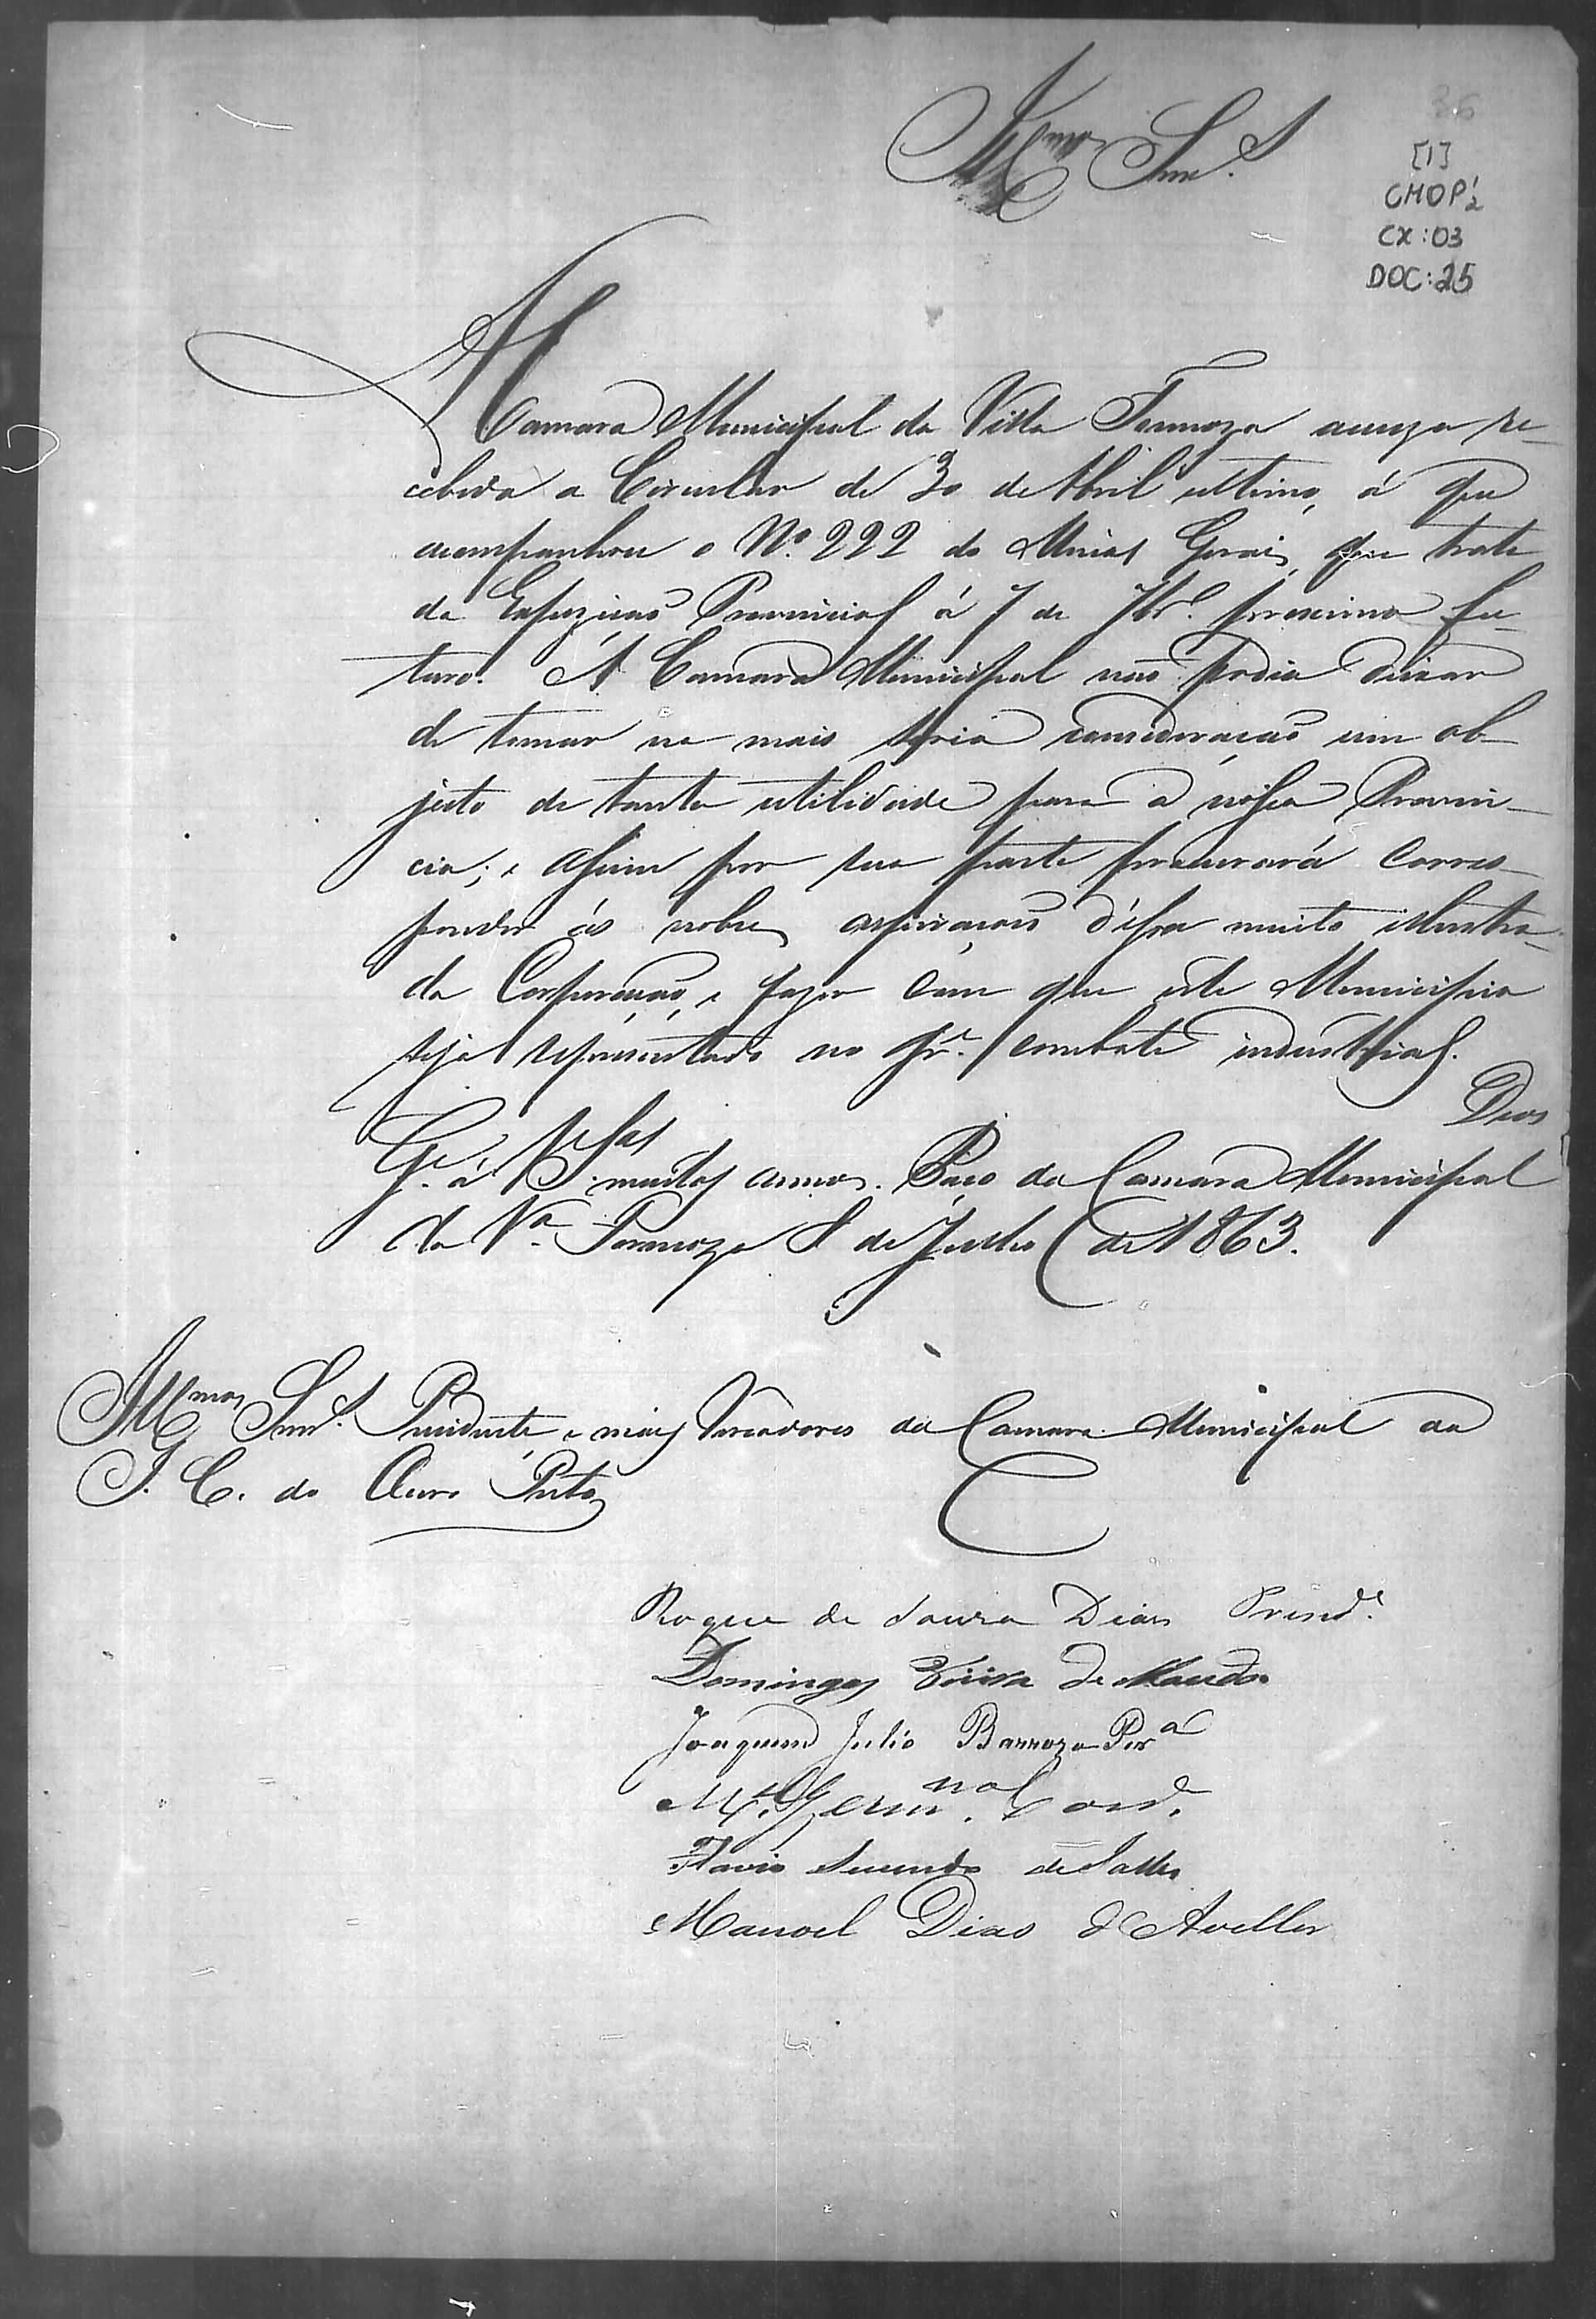 36
[1]
CMOP 2
CX: 03
DOC: 25
Illmos Snrs
A Camara Municipal da Villa Formoza acuza re-
cebida a Circular de 30 de Abril ultimo, á que
acompanhou o Nº. 222 do Minas Geraes, que trata
da Expozicao Provincial á 7 de 7br.º proximo fu-
turo. A Camara Municipal não podia deixar
de tomar na mais seria consideração um ob-
jecto de tanta utilidade para a nossa Provin-
cia; e assim por sua parte procurará corres-
ponder ás nobres aspirações d'essa muito illustra-
da Corporação, e fazer com que este Municipio
seja representado no gr.e combate industrial.
Deos
G.e á V. Sas muitos annos. Paço da Camara Municipal
da Va. Formoza 8 de Julho de 1863.
Illmos Snrs. Presidente, e mais Vereadores da Camara Municipal da
I. C. do Ouro Preto
Roque de Souza Dias Presid.e
Domingos de
Joaquim Julio Barrozo Per.a
Flavio Secundo de Salles
Manoel Dias d'Avellar